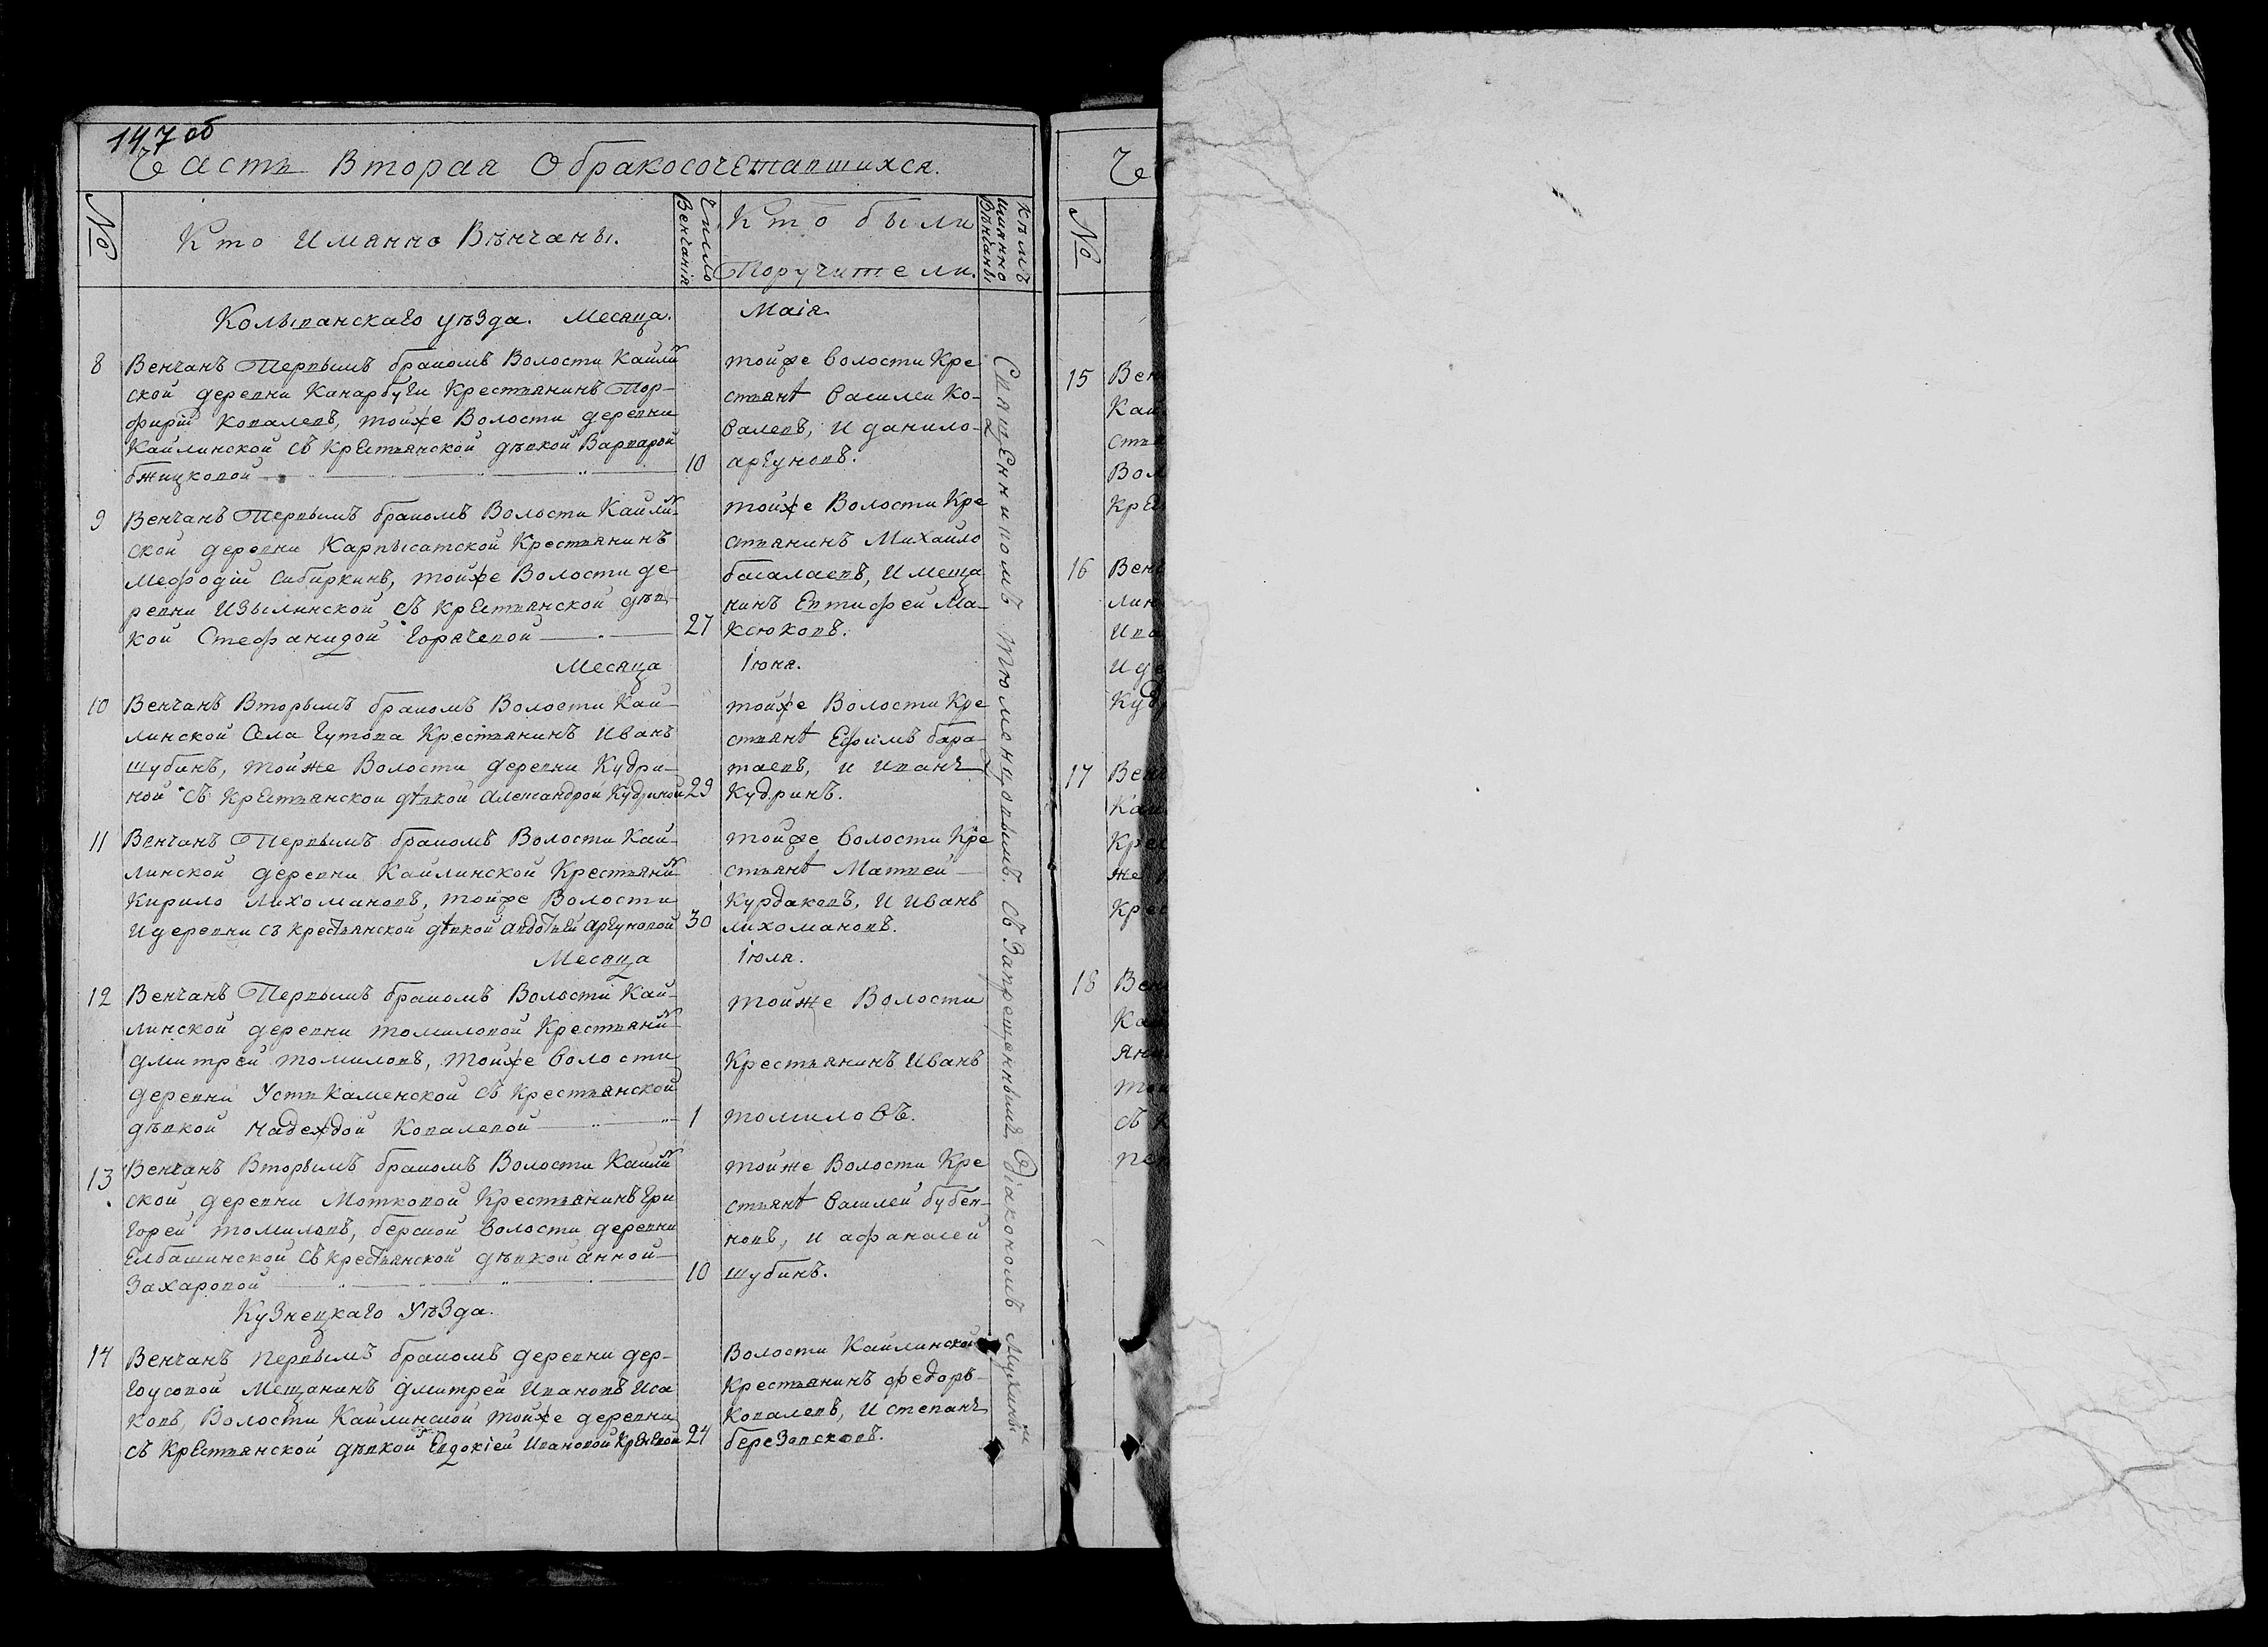 147 об
Часть Вторая О бракосочетавшихся.
№
Кто Имянно Вѣнчаны.
Число Венчанія
Кто были Поручители.
Кѣмъ имянно Вѣнчаны
Колыванскаго уѣзда. Месяца. Маія
8
Венчанъ Первымъ бракомъ Волости Кайлин
ской деревни Канарбуги Крестьянинъ Пор-
фирій Ковалевъ, тойже Волости деревни
Кайлинской съ Крестьянской дѣвкой Варварой
10
тойже волости Кре
стьянѣ василеи Ко-
валевъ, И данило
аргуновъ.
9
Венчанъ Первымъ бракомъ Волости Кайлин
ской деревни Карпысатской Крестьянинъ
Мефодій Сибиркинъ, тойже Волости де
ревни Изылинской съ Крестьянской дѣв-
кой Стефанидой Горячевой
27
тойже Волости Кре
стьянинъ Михайло
багалаевъ, И меща
нинъ Евтифей Ма-
ксюковъ.
Месяца Іюня.
10
Венчанъ Вторымъ бракомъ Волости Кай-
линской Села Гутова Крестьянинъ Иванъ
шубинъ, тойже Волости деревни Кудри-
ной съ Крестьянской дѣвкой александрой Кудриной
29
тойже Волости Кре
стьянѣ Ефимъ бара-
таевъ, и Иванъ
Кудринъ.
11
Венчанъ Первымъ бракомъ Волости Кай-
линской деревни Кайлинской Крестьянин
Кирило Лихомановъ, тойже Волости
И деревни съ крестьянской дѣвкой авдотьей аргуновой
30
тойже волости Кре
стьянѣ Матвей
Курдаковъ, И Иванъ
лихомановъ.
Месяца Іюля.
12
Венчанъ Первымъ бракомъ Волости Кай-
линской деревни томиловой Крестьянин
дмитрей томиловъ, тойже волости
деревни УстьКаменской съ Крестьянской
дѣвкой надеждой Ковалевой
1
тойже Волости
Крестьянинъ Иванъ
томиловъ.
13
Венчанъ Вторымъ бракомъ Волости Кайлин
ской деревни Мотковой Крестьянинъ Гри
горей томиловъ, берской волости деревни
Елбашинской съ крестьянской дѣвкой анной
Захаровой
10
тойже Волости Кре
стьянѣ василей бубен-
новъ, И афанасей
шубинъ.
Кузнецкаго Уѣзда.
14
Венчанъ первымъ бракомъ деревни дер-
гоусовой Мещанинъ дмитрей Ивановъ Иса
ковъ, Волости Кайлинской тойже деревни
съ Крестьянской дѣвкой Евдокіей Ивановой
24
Волости Кайлинской
Крестьянинъ федоръ
Ковалевъ, И степанъ
березовсковъ.
Священникомъ тюменцовымъ. съ Запрещеннымъ Діакономъ Мухинымъ
№
15
Вен
Кай
сть
Вол
Кре
16
Вен
лин
Ива
И де
Куд
17
Вен
Кай
Крес
же
Крес
18
Вен
Кай
яни
той
съ К